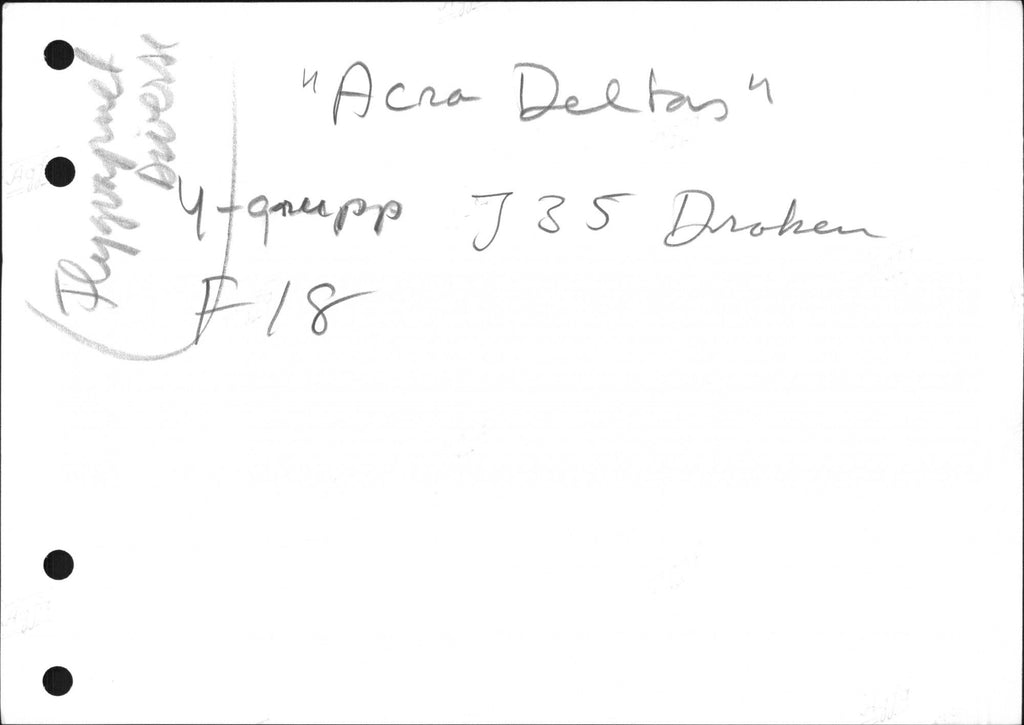 "Acro Deltas"
4-grupp J35 Draken
F18
Flygvapnet
Diverse